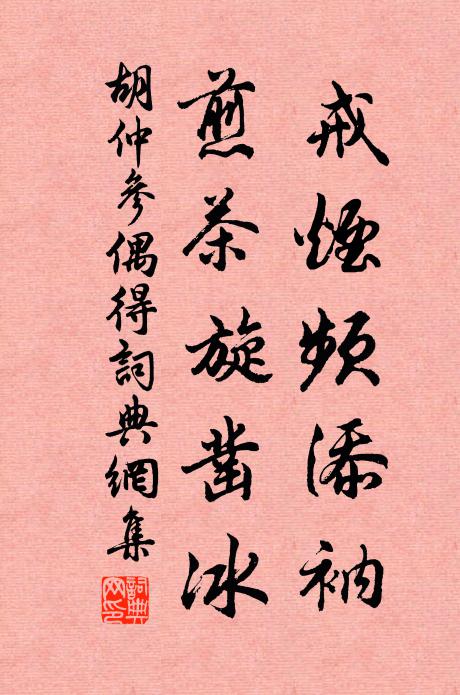 戒煙頻添衲
煎茶旋凿冰
胡仲参偶得詞典網集
詞典網印